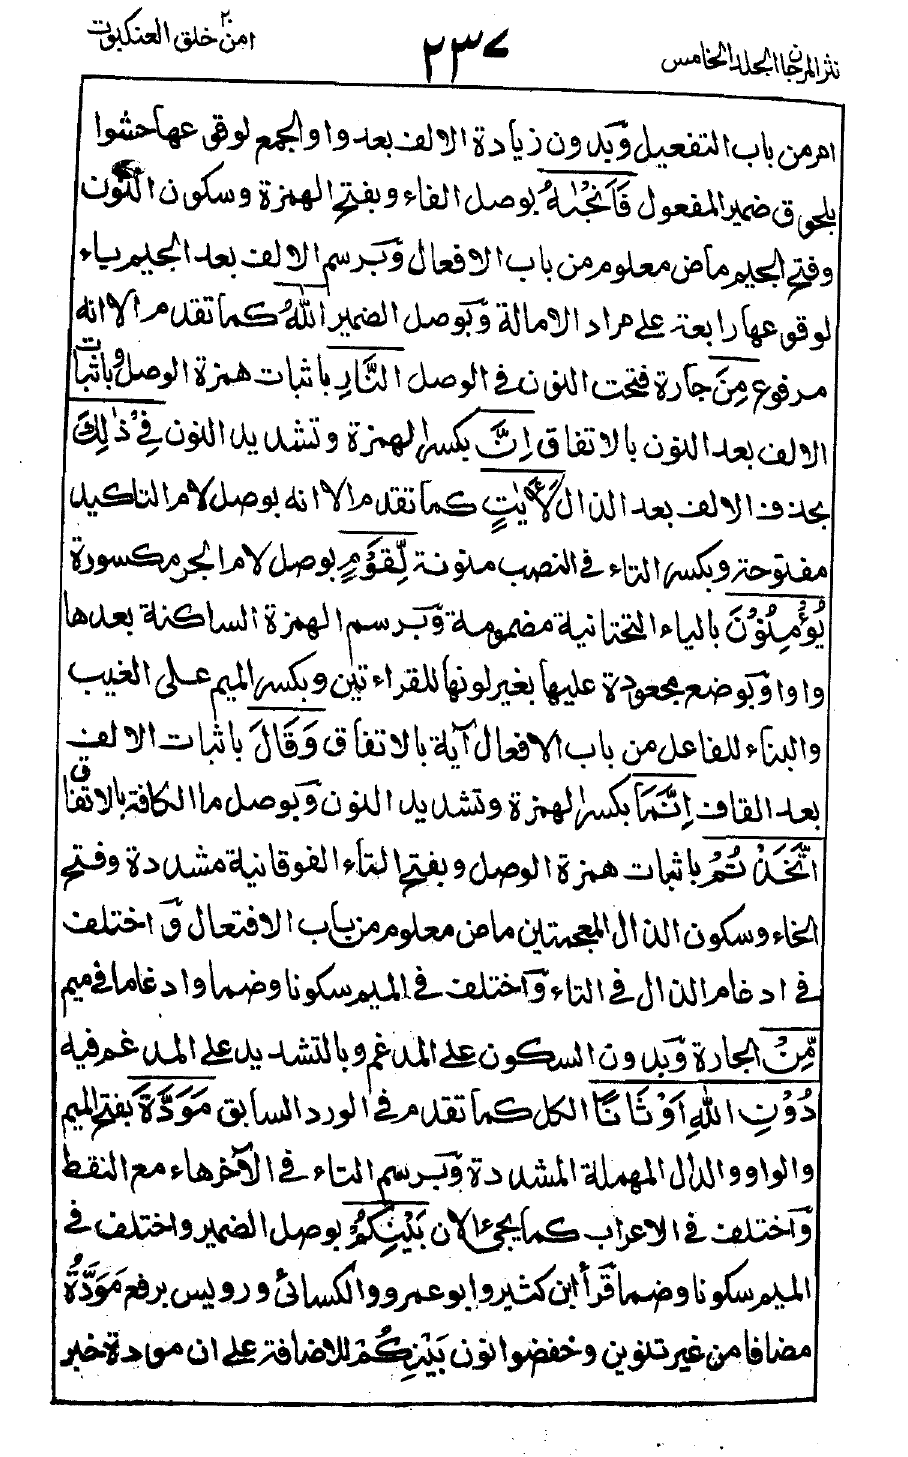 نثر المرجان الجلد الخامس
٢٣٧
امن خلق ٢٠ العنكبوت
امر من باب التفعيل وّبدون زيادة الالف بعد واو الجمع لوقوعها حشوا
بلحوق ضمير المفعول فَاَنْجٰىهُ بوصل الفاء وبفتح الهمزة وسكون النون
وفتح الجيم ماض معلوم من باب الافعال وّبرسم الالف بعد الجيم ياء
لوقوعها رابعة على مراد الامالة وّبوصل الضمير اللّٰهُ كما تقدم الا انه
مرفوع مِنَ جارة فتحت النون في الوصل النَّارِ باثبات همزة الوصل وباثبات
الالف بعد النون بالاتفاق اِنَّ بكسر الهمزة وتشديد النون فِيْ ذٰلِكَ
بحذف الالف بعد الذال لَاٰيٰتٍ كما تقدم الا انه بوصل لام التاكيد
مفتوحة وبكسر التاء في النصب منونة لِّقَوْمٍ بوصل لام الجر مكسورة
يُّؤْمِنُوْنَ بالياء التحتانية مضمومة وّبرسم الهمزة الساكنة بعدها
واوا وّبوضع مجعودة عليها بغير لونها للقراءتين وبكسر الميم على الغيب
والبناء للفاعل من باب الافعال آية بالاتفاق وَقَالَ باثبات الالف
بعد القاف اِنَّمَا بكسر الهمزة وتشديد النون وّبوصل ما الكافة بالاتفاق
اتَّخَذْتُمْ باثبات همزة الوصل وبفتح التاء الفوقانية مشددة وفتح
الخاء وسكون الذال المعجمتين ماض معلوم من باب الافتعال وّاختلف
في ادغام الذال في التاء وّاختلف في الميم سكونا وضما وادغاما في ميم
مِّنْ الجارة وّبدون السكون على المدغم وبالتشديد على المدغم فيه
دُوْنِ اللّٰهِ اَوْثَانًا الكل كما تقدم في الورد السابق مَوَدَّةَ بفتح الميم
والواو والدال المهملة المشددة وّبرسم التاء في الآخر هاء مع النقط
وّاختلف في الاعراب كما يجئ الان بَيْنِكُمْ بوصل الضمير واختلف في
الميم سكونا وضما قرأ ابن كثير وابو عمرو والكسائي ورويس برفع مَوَدَّةُ
مضافا من غير تنوين وخفضوا نون بَيْنِكُمْ للاضافة على ان موادة خبر